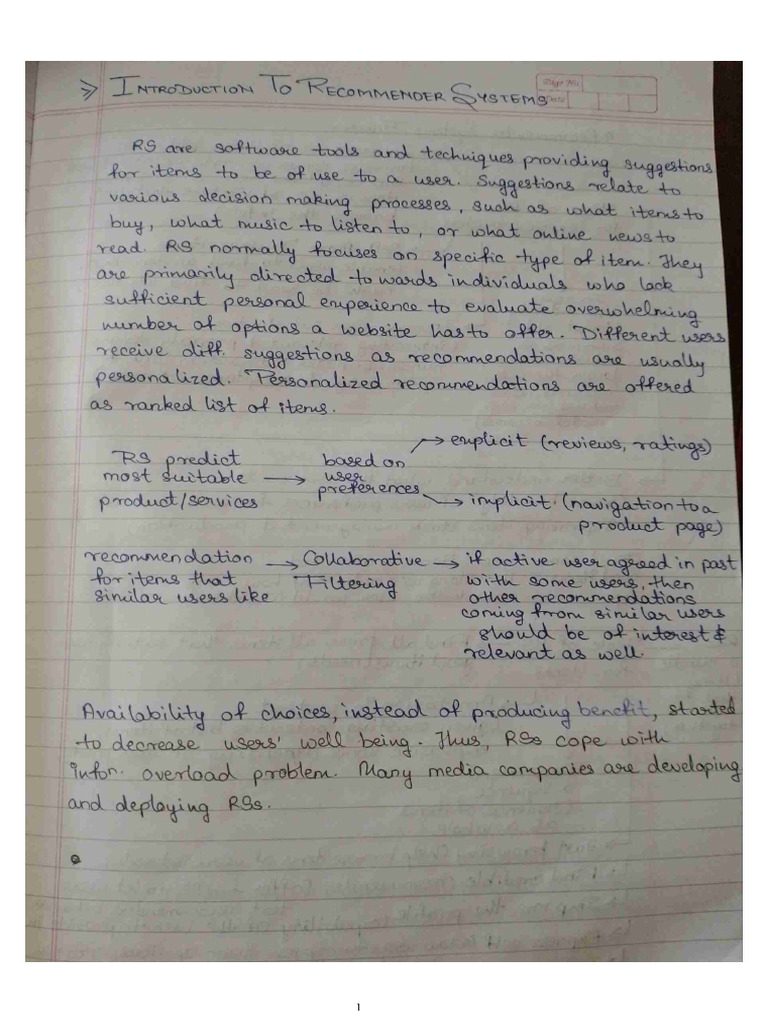 ⇒ INTRODUCTION TO RECOMMENDER SYSTEMS
Page No.
Date
RS are software tools and techniques providing suggestions
for items to be of use to a user. Suggestions relate to
various decision making processes, such as what items to
buy, what music to listen to, or what online news to
read. RS normally focuses on specific type of item. They
are primarily directed towards individuals who lack
sufficient personal experience to evaluate overwhelming
number of options a website has to offer. Different users
receive diff. suggestions as recommendations are usually
personalized. Personalized recommendations are offered
as ranked list of items.
RS predict most suitable product/services → based on user preferences
→ explicit (reviews, ratings)
→ implicit (navigation to a
product page)
recommendation → Collaborative → if active user agreed in past
for items that Filtering with some users, then
similar users like other recommendations
coming from similar users
should be of interest &
relevant as well.
Availability of choices, instead of producing benefit, started
to decrease users' well being. Thus, RSs cope with
infor. overload problem. Many media companies are developing
and deploying RSs.
1